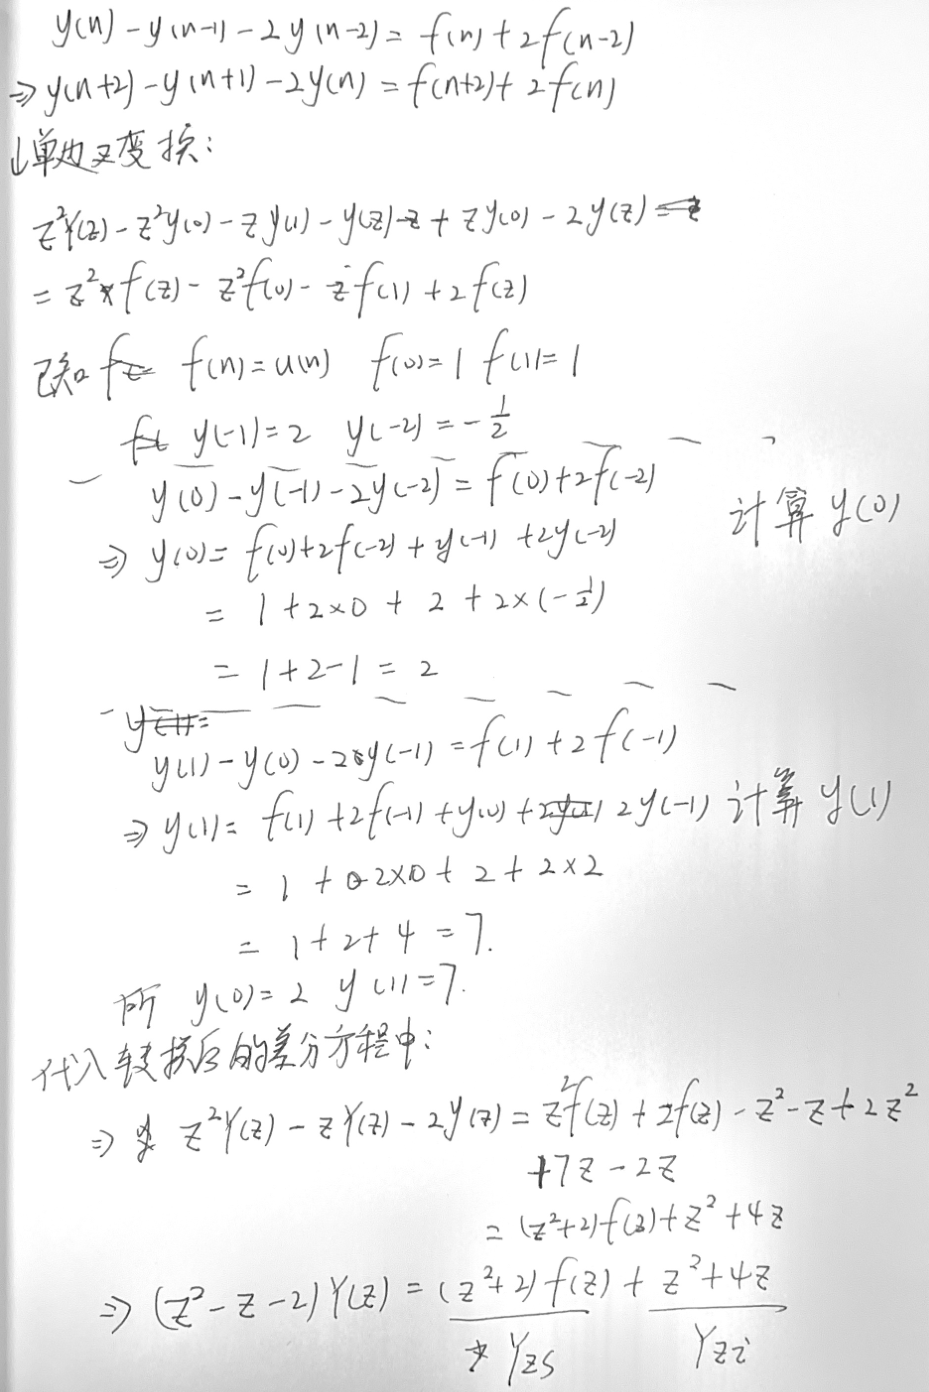 y(n) - y(n-1) - 2y(n-2) = f(n) + 2f(n-2)
⇒ y(n+2) - y(n+1) - 2y(n) = f(n+2) + 2f(n)
↓单边z变换:
z²Y(z) - z²y(0) - zy(1) - y(z)z + zy(0) - 2y(z)
= z²f(z) - z²f(0) - zf(1) + 2f(z)
已知 f(n)=u(n) f(0)=1 f(1)=1
y(-1)=2 y(-2)=-1/2
y(0) - y(-1) - 2y(-2) = f(0) + 2f(-2)
计算 y(0)
⇒ y(0) = f(0) + 2f(-2) + y(-1) + 2y(-2)
= 1 + 2×0 + 2 + 2×(-1/2)
= 1+2-1 = 2
y(1) - y(0) - 2y(-1) = f(1) + 2f(-1)
⇒ y(1) = f(1) + 2f(-1) + y(0) + 2y(-1) 计算 y(1)
= 1 + 2×0 + 2 + 2×2
= 1+2+4 = 7.
所 y(0)=2 y(1)=7.
代入转换后的差分方程中:
⇒ z²Y(z) - zY(z) - 2y(z) = z²f(z) + 2f(z) - z² - z + 2z²
+7z - 2z
= (z²+2)f(z) + z² + 4z
⇒ (z²-z-2)Y(z) = (z²+2)f(z) + z²+4z
Yzs Yzi